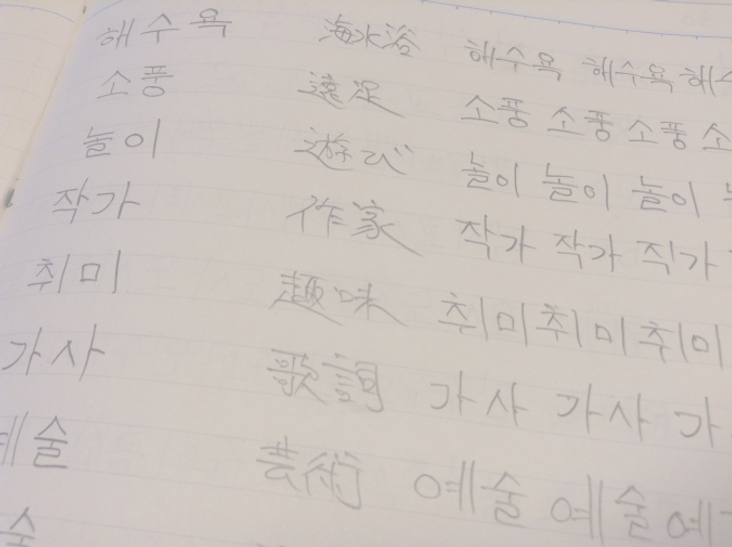 해수욕 海水浴 해수욕 해수욕 해수
소풍 遠足 소풍 소풍 소풍 소
놀이 遊び 놀이 놀이 놀이
작가 作家 작가 작가 직가
취미 趣味 취미 취미 취미
가사 歌詞 가사 가사 가
예술 芸術 예술 예술 예
술